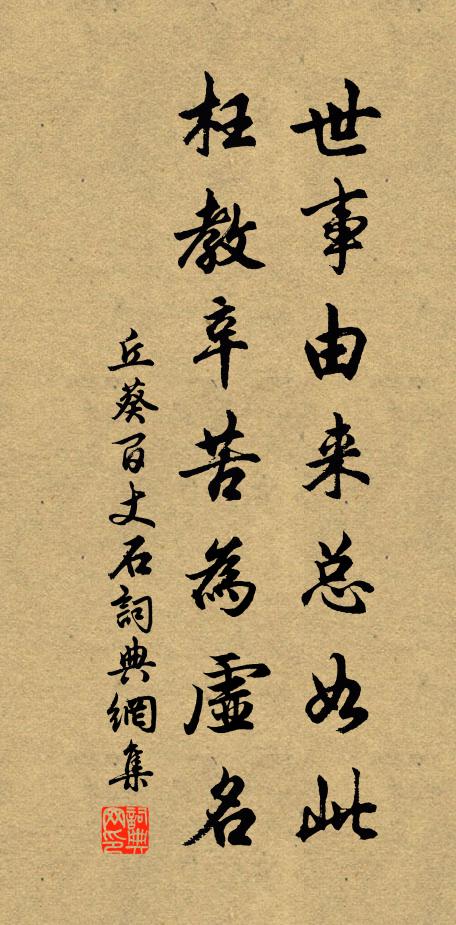 世事由来总如此
枉教辛苦為虛名
丘葵百丈石詞典網集
詞典网印